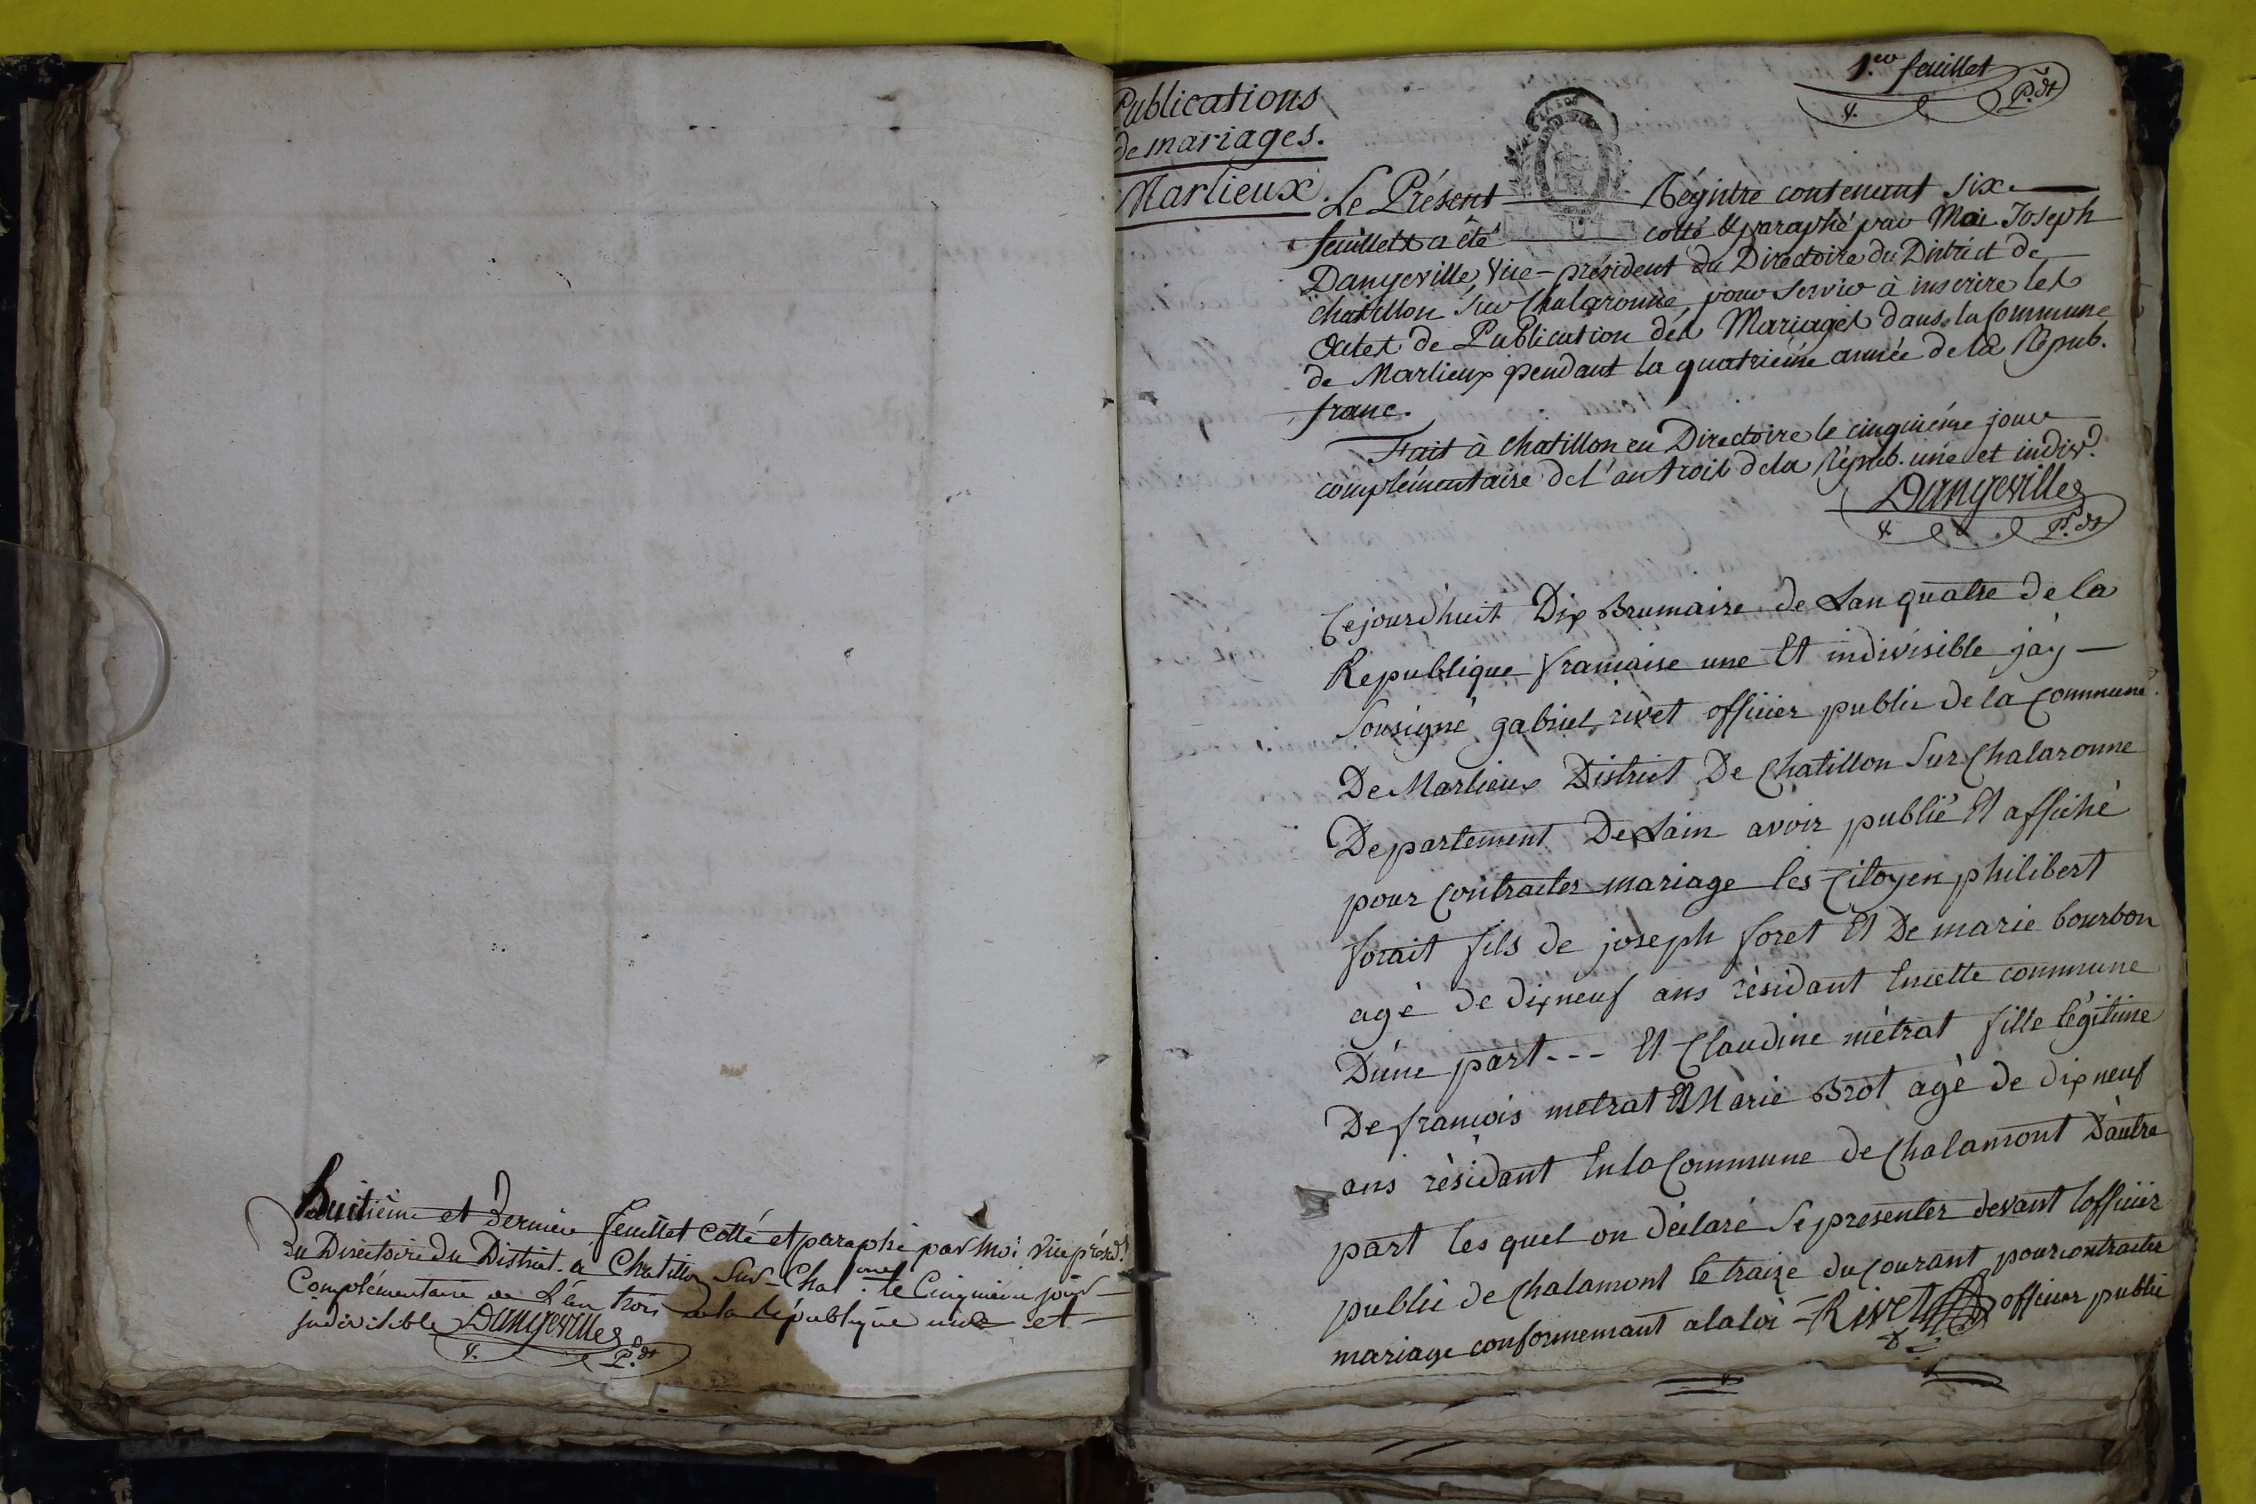 huitième et Dernière feuillet cotté et paraphé par moi Vice présid.t
du Directoire du District a Chatillon Sur-Chal.onne le Cinquieme jour
Complémentaire de L'an trois de la République une et
indivisible Dangeville
P.dt
1.er feuillet
P.dt
Publications
de mariages.
Marlieux.
Le Présent Régistre contenant six
feuillets a été cotté & paraphé par Moi Joseph
Dangeville, Vice-président du Directoire du District de
chatillon sur Chalaronne, pour servir à inscrire les
Actes de Publication des Mariages dans la Commune
de Marlieux pendant la quatriéme année de la Répub.
franc.
Fait à chatillon en Directoire le cinquiéme jour
complémentaire de l'an trois de la Répub. une et indiv.
Dangeville
P.dt
Cejourd'huit Dix Brumaire de Lan quatre de la
Republique francaise une Et indivisible j'ay
Sousigné gabriel rivet officier public de la Commune
De Marlieux District De Chatillon Sur Chalaronne
Departement De Lain avoir publié Et affiché
pour Contracter mariage les Citoyen philibert
forait fils de joseph foret Et De marie bourbon
agé de dixneuf ans résidant Encette commune
D'une part --- Et Claudine métrat fille légitime
De francois metrat Et Marie Brot agé de dixneuf
ans résidant En la Commune de Chalamont D'autre
part les quel on déclaré Se presenter devant lofficier
public de Chalamont le traize du Courant pour contracter
mariage conformemant a la loi = Rivet officier public